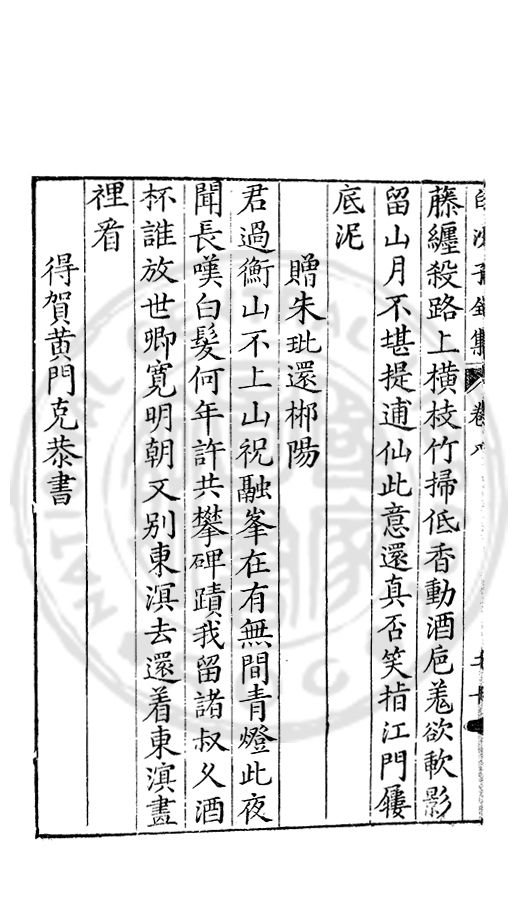 白沙子全集 卷八
藤纏殺路上橫枝竹掃低香動酒巵羗欲軟影
留山月不堪提逋仙此意還真否笑指江門屨
底泥
贈朱玭還郴陽
君過衡山不上山祝融峯在有無間青燈此夜
聞長嘆白髮何年許共攀碑蹟我留諸叔父酒
杯誰放世卿寬明朝又別東溟去還着東溟畫
裡看
得賀黃門克恭書